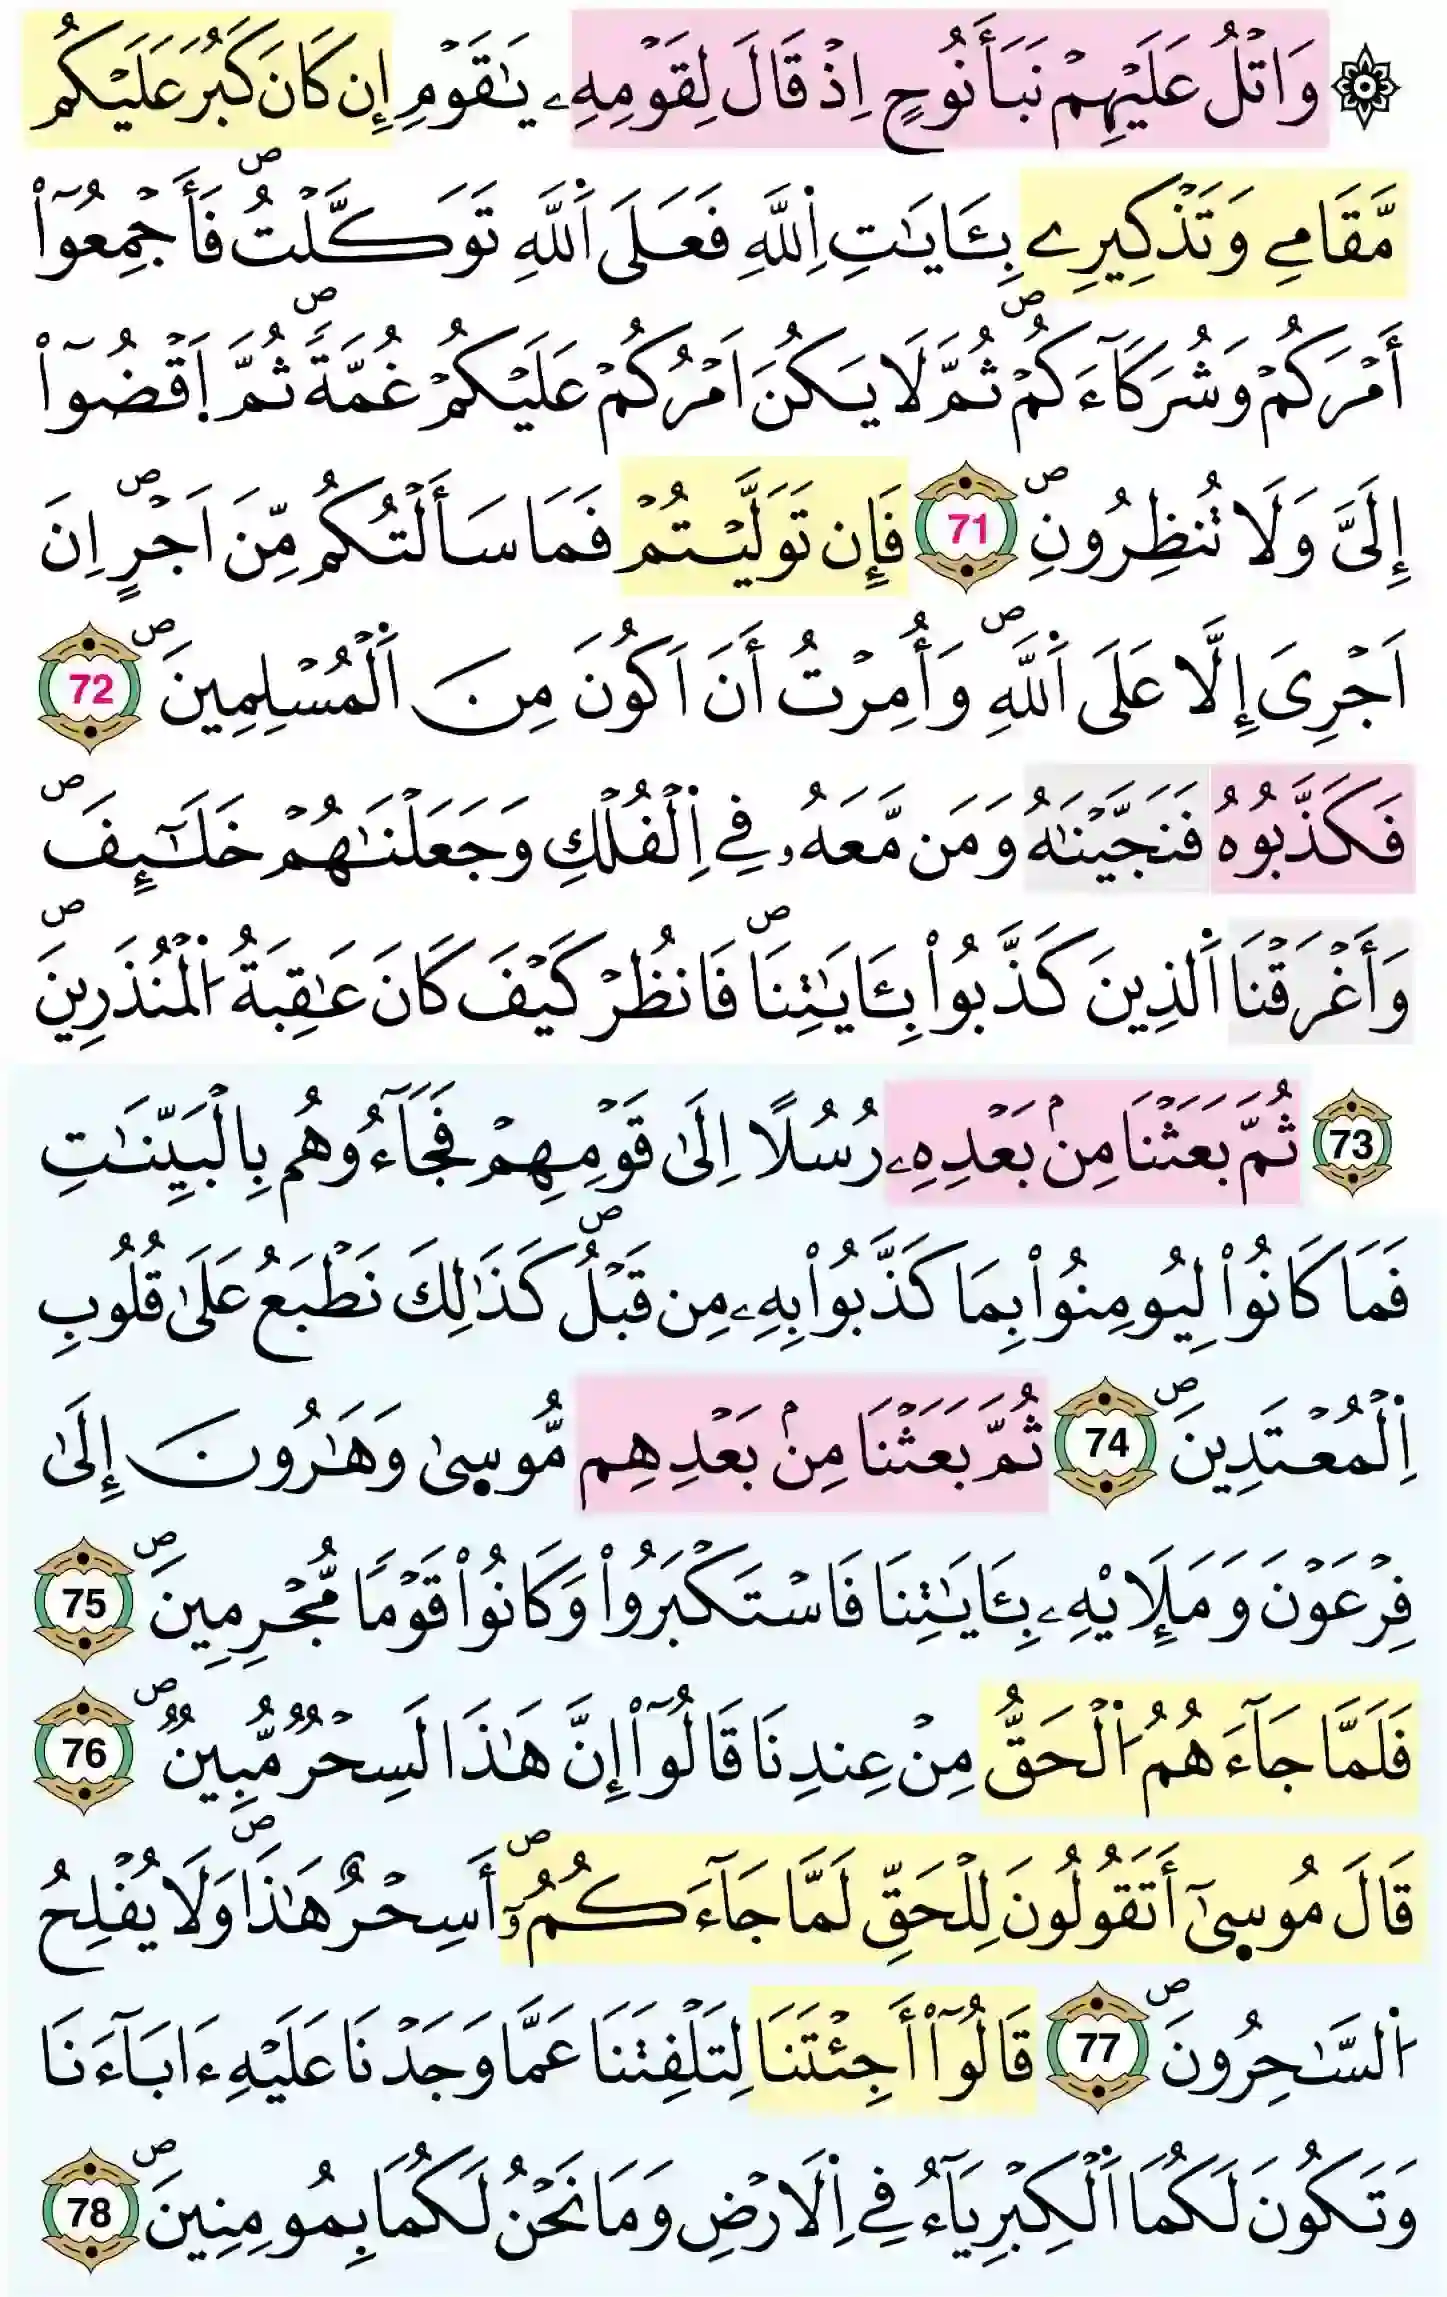 ۞ وَاتْلُ عَلَيْهِمْ نَبَأَ نُوحٍ اِذْ قَالَ لِقَوْمِهِۦ يَٰقَوْمِ إِن كَانَ كَبُرَ عَلَيْكُم
مَّقَامِے وَتَذْكِيرِے بِـَٔايَٰتِ اِ۬للَّهِ فَعَلَى اَ۬للَّهِ تَوَكَّلْتُۖ فَأَجْمِعُوٓاْ
أَمْرَكُمْ وَشُرَكَآءَكُمْۖ ثُمَّ لَا يَكُنَ اَمْرُكُمْ عَلَيْكُمْ غُمَّةٗۖ ثُمَّ اَ۪قْضُوٓاْ
إِلَىَّ وَلَا تُنظِرُونِۖ 71 فَإِن تَوَلَّيْتُمْ فَمَا سَأَلْتُكُم مِّنَ اَجْرٍۖ اِنَ
اَجْرِىَ إِلَّا عَلَى اَ۬للَّهِۖ وَأُمِرْتُ أَنَ اَكُونَ مِنَ اَ۬لْمُسْلِمِينَۖ 72
فَكَذَّبُوهُ فَنَجَّيْنَٰهُ وَمَن مَّعَهُۥ فِے اِ۬لْفُلْكِ وَجَعَلْنَٰهُمْ خَلَٰٓئِفَۖ
وَأَغْرَقْنَا اَ۬لذِينَ كَذَّبُواْ بِـَٔايَٰتِنَاۖ فَانظُرْ كَيْفَ كَانَ عَٰقِبَةُ اُ۬لْمُنذَرِينَۖ
73 ثُمَّ بَعَثْنَا مِنۢ بَعْدِهِۦ رُسُلًا اِلَىٰ قَوْمِهِمْ فَجَآءُوهُم بِالْبَيِّنَٰتِ
فَمَا كَانُواْ لِيُومِنُواْ بِمَا كَذَّبُواْ بِهِۦ مِن قَبْلُۖ كَذَٰلِكَ نَطْبَعُ عَلَىٰ قُلُوبِ
اِ۬لْمُعْتَدِينَۖ 74 ثُمَّ بَعَثْنَا مِنۢ بَعْدِهِم مُّوسۭىٰ وَهَٰرُونَ إِلَىٰ
فِرْعَوْنَ وَمَلَإِيْهِۦ بِـَٔايَٰتِنَا فَاسْتَكْبَرُواْ وَكَانُواْ قَوْمًا مُّجْرِمِينَۖ 75
فَلَمَّا جَآءَهُمُ اُ۬لْحَقُّ مِنْ عِندِنَا قَالُوٓاْ إِنَّ هَٰذَا لَسِحْرٌ مُّبِينٌۖ 76
قَالَ مُوسۭىٰٓ أَتَقُولُونَ لِلْحَقِّ لَمَّا جَآءَكُمُۥٓۖ أَسِحْرٌ هَٰذَاۖ وَلَا يُفْلِحُ
اُ۬لسَّٰحِرُونَۖ 77 قَالُوٓاْ أَجِئْتَنَا لِتَلْفِتَنَا عَمَّا وَجَدْنَا عَلَيْهِ ءَابَآءَنَا
وَتَكُونَ لَكُمَا اَ۬لْكِبْرِيَآءُ فِے اِ۬لَارْضِ وَمَا نَحْنُ لَكُمَا بِمُومِنِينَۖ 78